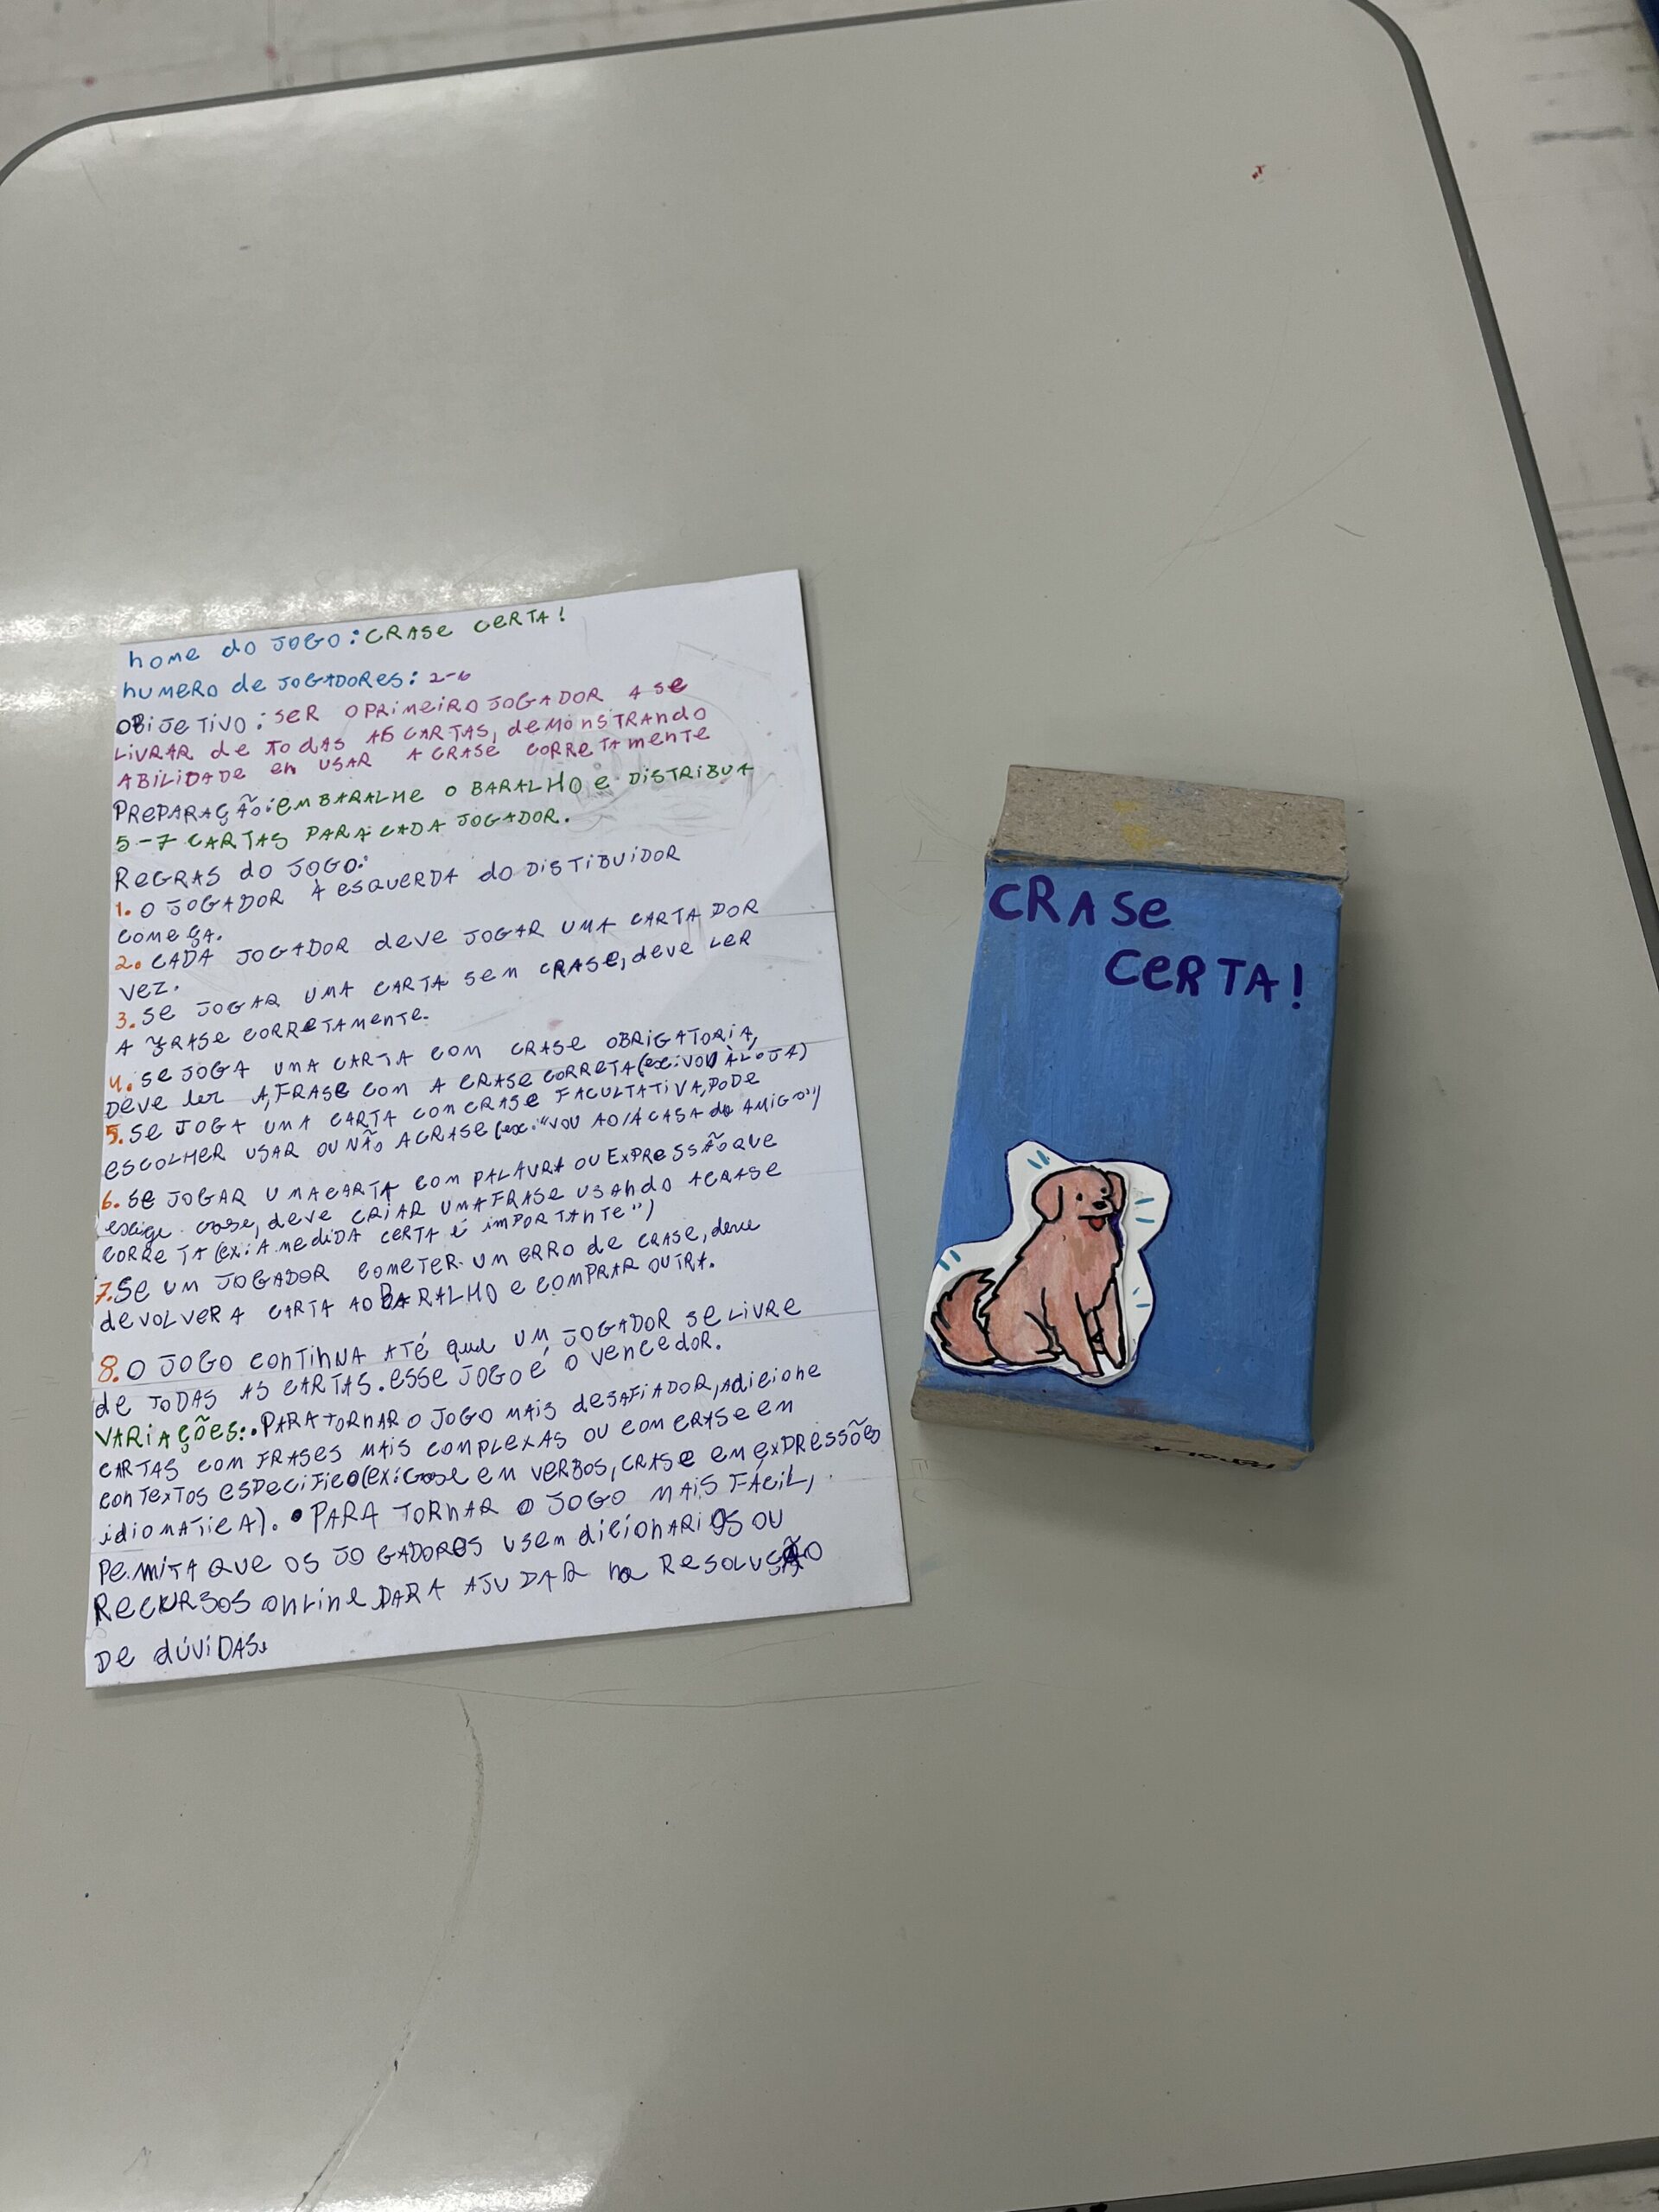 nome do JOGO: CRASE CERTA!
numero de JOGADORES: 2-6
OBiJETIVO: SER O PRIMEIRO JOGADOR A SE
LIVRAR de TODAS AS CARTAS, deMONSTRANdo
ABILIDADE em USAR A CRASE CORRETAMENTE
PREPARAÇÃO: EMBARALHE O BARALHO e DISTRIBUA
5-7 CARTAS PARA CADA JOGADOR.
REGRAS do JOGO:
1. O JOGADOR À ESQUERDA do DISTIBUIDOR
COMEÇA.
2. CADA JOGADOR deve JOGAR UMA CARTA POR
VEZ.
3. SE JOGAR UMA CARTA SEM CRASE, deve LER
A FRASE CORRETAMENTE.
4. SE JOGA UMA CARTA COM CRASE OBRIGATORIA,
DEVE ler A FRASE COM A CRASE CORRETA (ex: VOU À LOJA)
5. SE JOGA UMA CARTA COM CRASE FACULTATIVA, PODE
ESCOLHER USAR OU NÃO A CRASE (ex: "VOU AO/À CASA do AMIGO")
6. SE JOGAR UMA CARTA COM PALAVRA OU EXPRESSÃO QUE
exige crase, deve CRIAR UMA FRASE USANDO A CRASE
CORRETA (ex: A MEDIDA CERTA É IMPORTANTE")
7. SE UM JOGADOR COMETER UM ERRO de CRASE, deve
devOLVER A CARTA AO BARALHO e COMPRAR OUTRA.
8. O JOGO CONTINUA ATÉ que UM JOGADOR SE LIVRE
de TODAS AS CARTAS. ESSE JOGO É O VENCEDOR.
VARIAÇÕES: • PARA TORNAR O JOGO MAIS DESAFIADOR, Adicione
CARTAS COM FRASES MAIS COMPLEXAS OU COM CRASE EM
CONTEXTOS ESPECIFICO (EX: Crase em VERBOS, CRASE EM EXPRESSÕES
idiomATICA). • PARA TORNAR O JOGO MAIS FÁCIL,
PERMITA QUE OS JOGADORES USEM diCIONARIOS OU
RECURSOS ONLINE PARA AJUDAR na RESOLUÇÃO
DE dÚViDAS.
CRASE
CERTA!